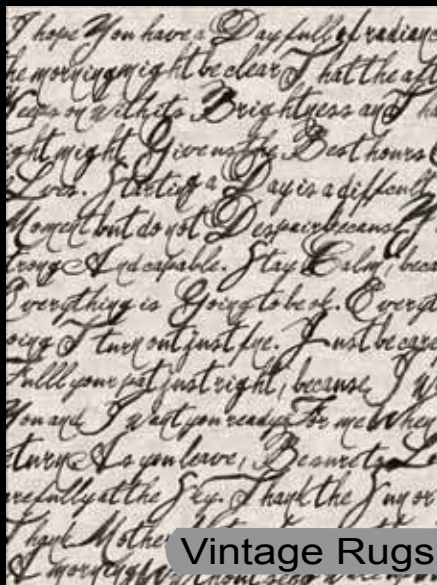 I hope You have a Day full of radianc
he morning might be clear T hat the aft
Keeps on with its Brightness and T ha
ight might Give us the Best hours
Lives. Starting a Day is a difficult
Moment but do not Despair because Y
trong And capable. Stay Calm, beca
Everything is Going to be ok. Everyt
oing T turn out just fine. J ust be care
Fulll your just right, because I W
You and I want you ready For me when
eturn. As you leave, Be sure to L
arefully at the Sky. T hank the Sun or
T hank Mother
A morning
Vintage Rugs